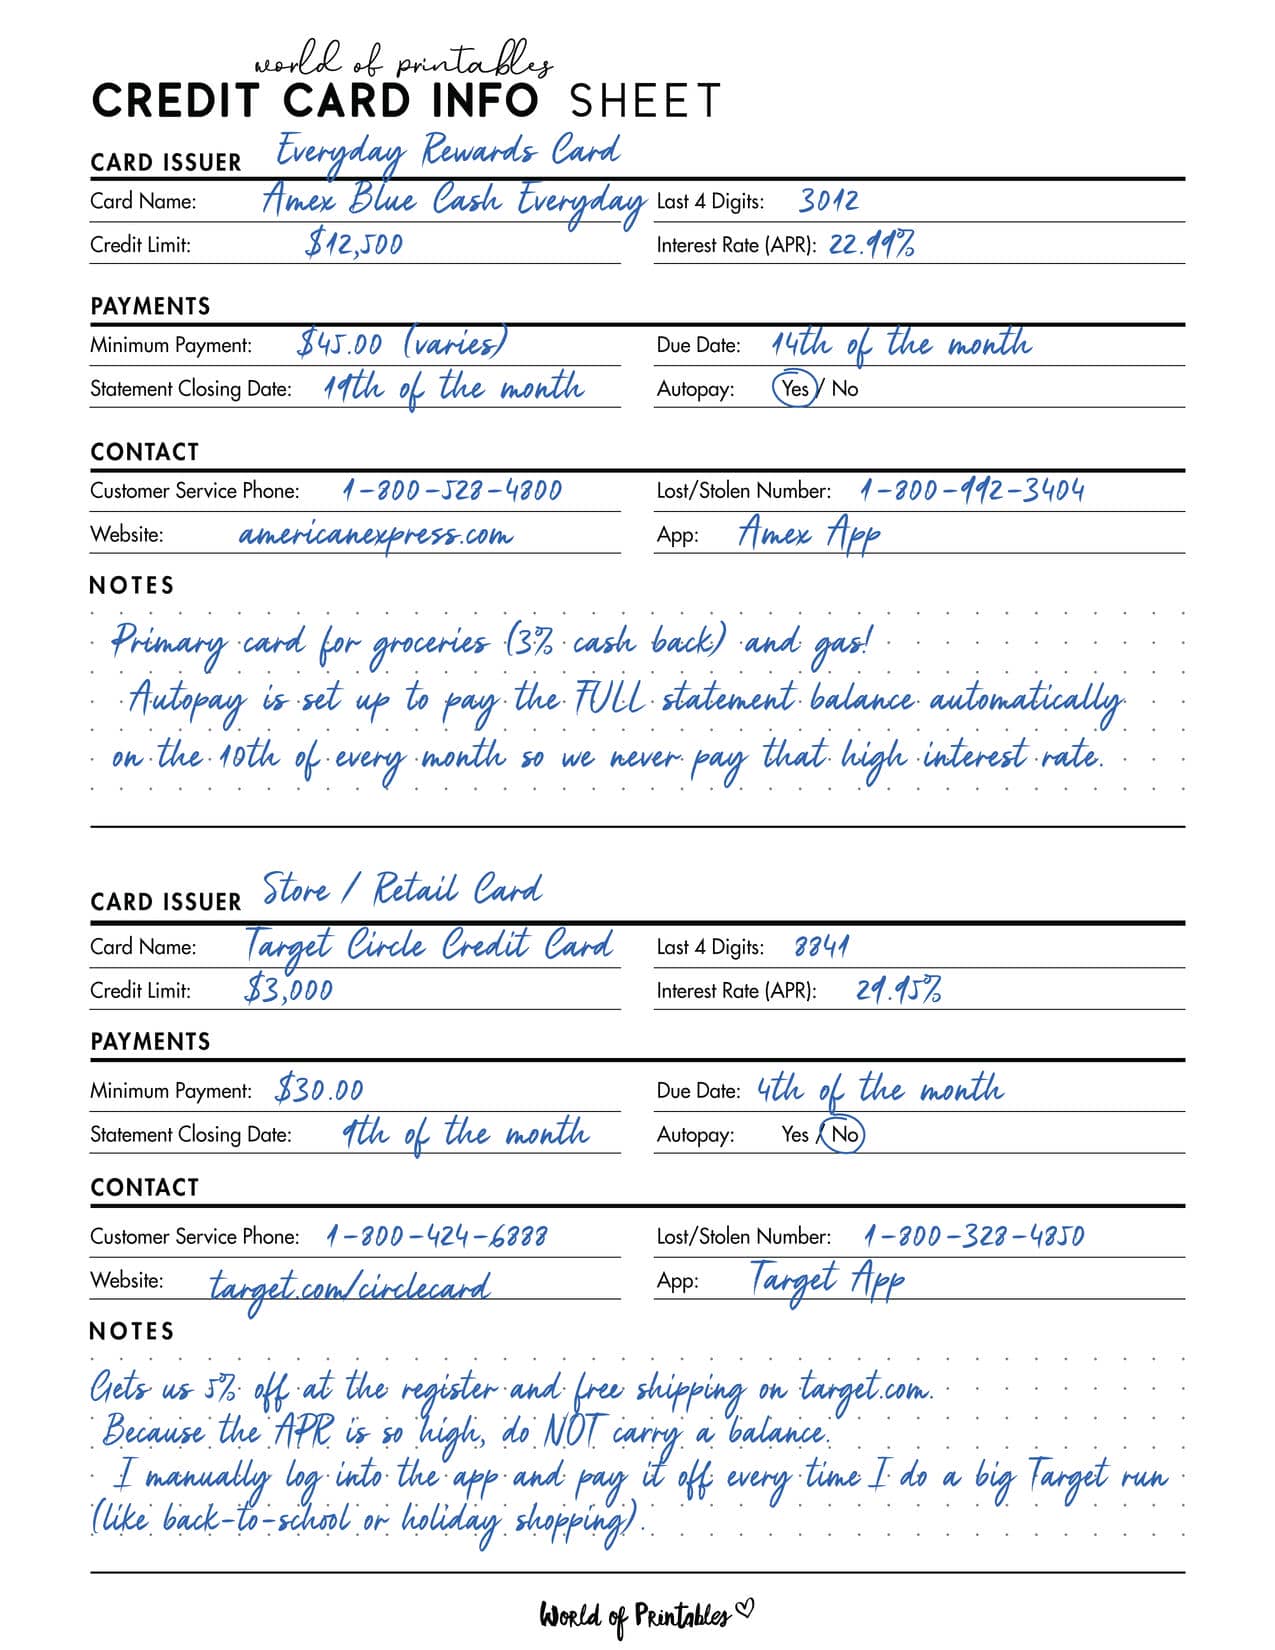 world of printables
CREDIT CARD INFO SHEET
CARD ISSUER Everyday Rewards Card
Card Name: Amex Blue Cash Everyday Last 4 Digits: 3012
Credit Limit: $12,500 Interest Rate (APR): 22.99%
PAYMENTS
Minimum Payment: $45.00 (varies) Due Date: 14th of the month
Statement Closing Date: 19th of the month Autopay: Yes / No
CONTACT
Customer Service Phone: 1-800-528-4800 Lost/Stolen Number: 1-800-992-3404
Website: americanexpress.com App: Amex App
NOTES
Primary card for groceries (3% cash back) and gas!
Autopay is set up to pay the FULL statement balance automatically
on the 10th of every month so we never pay that high interest rate.
CARD ISSUER Store / Retail Card
Card Name: Target Circle Credit Card Last 4 Digits: 8841
Credit Limit: $3,000 Interest Rate (APR): 29.95%
PAYMENTS
Minimum Payment: $30.00 Due Date: 4th of the month
Statement Closing Date: 9th of the month Autopay: Yes / No
CONTACT
Customer Service Phone: 1-800-424-6888 Lost/Stolen Number: 1-800-328-4850
Website: target.com/circlecard App: Target App
NOTES
Gets us 5% off at the register and free shipping on target.com.
Because the APR is so high, do NOT carry a balance.
I manually log into the app and pay it off every time I do a big Target run
(like back-to-school or holiday shopping).
World of Printables